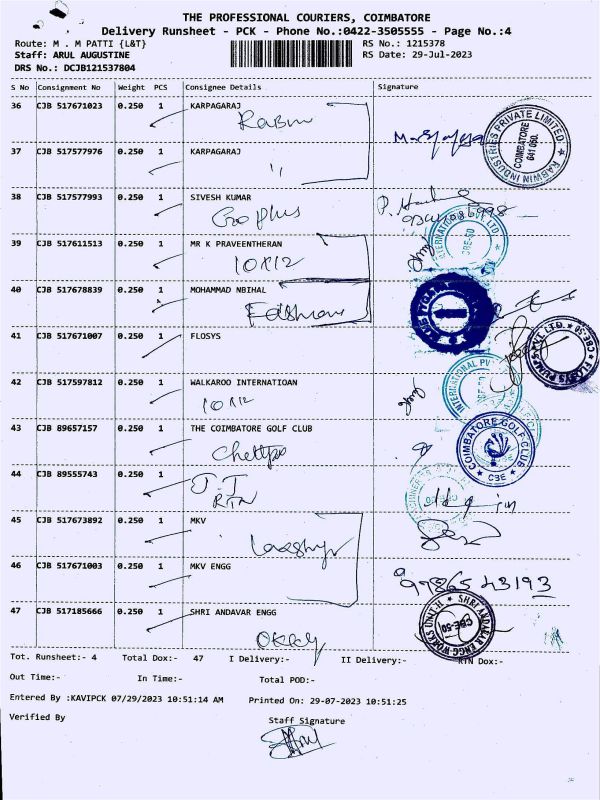 THE PROFESSIONAL COURIERS, COIMBATORE
Delivery Runsheet - PCK - Phone No.:0422-3505555 - Page No.:4
Route: M . M PATTI {L&T} RS No.: 1215378
Staff: ARUL AUGUSTINE RS Date: 29-Jul-2023
DRS No.: DCJB121537804
S No Consignment No Weight PCS Consignee Details Signature
36 CJB 517671023 0.250 1 KARPAGARAJ
Rabwin
RABWIN INDUSTRIES PRIVATE LIMITED
COIMBATORE
641 050.
37 CJB 517577976 0.250 1 KARPAGARAJ
"
38 CJB 517577993 0.250 1 SIVESH KUMAR
39 CJB 517611513 0.250 1 MR K PRAVEENTHERAN
10x12
40 CJB 517678839 0.250 1 MOHAMMAD NBIHAL
41 CJB 517671007 0.250 1 FLOSYS
FLOSYS PUMPS PVT. LTD. CBE-50
42 CJB 517597812 0.250 1 WALKAROO INTERNATIOAN
10x12
INTERNATIONAL PV
43 CJB 89657157 0.250 1 THE COIMBATORE GOLF CLUB
COIMBATORE GOLF CLUB
CBE
44 CJB 89555743 0.250 1
J.T
RTN
45 CJB 517673892 0.250 1 MKV
46 CJB 517671003 0.250 1 MKV ENGG
99865 43193
47 CJB 517185666 0.250 1 SHRI ANDAVAR ENGG
SHRI ANDAVAR ENGG WORKS UNIT-II
CBE-50
Tot. Runsheet:- 4 Total Dox:- 47 I Delivery:- II Delivery:- RTN Dox:-
Out Time:- In Time:- Total POD:-
Entered By :KAVIPCK 07/29/2023 10:51:14 AM Printed On: 29-07-2023 10:51:25
Verified By Staff Signature